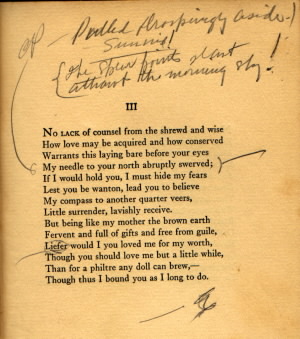 aside
without the morning sky!
III
No LACK of counsel from the shrewd and wise
How love may be acquired and how conserved
Warrants this laying bare before your eyes
My needle to your north abruptly swerved;
If I would hold you, I must hide my fears
Lest you be wanton, lead you to believe
My compass to another quarter veers,
Little surrender, lavishly receive.
But being like my mother the brown earth
Fervent and full of gifts and free from guile,
Liefer would I you loved me for my worth,
Though you should love me but a little while,
Than for a philtre any doll can brew,—
Though thus I bound you as I long to do.